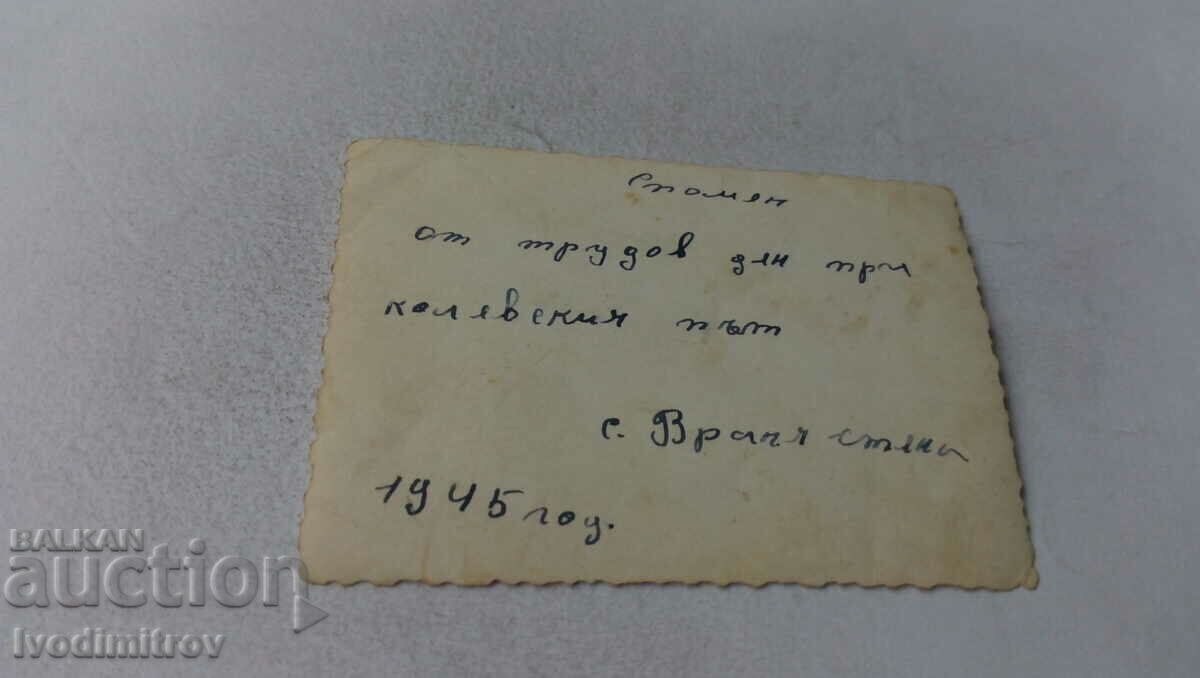 Спомен
от трудов ден при
колевския път
с. Враня стена
1945 год.
BALKAN
auction
Ivodimitrov